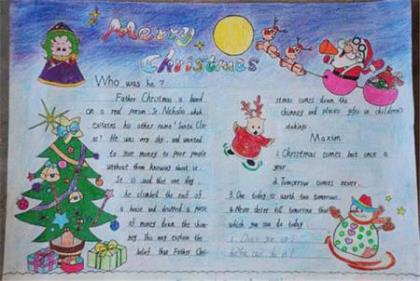 Merry
Christmas
Who was he?
Father Christmas a based
on a real person St. Nicholas which
explains his other name "Santa Cla-
us". He was very shy and wanted
to give money to poor people
without them knowing about it.
It is said that one day,
he climbed the roof of
a house and dropped a purse
of money down the chim-
ney. This may explain the
belief that Father Chri-
stmas comes down the
chimney and places gifts in children's
stockings
Maxim
1.Christmas comes but once a
year.
2.Tomorrow comes never.
3.One today is worth two tomorrows.
4.Never defer till tomorrow that
which you can do today.